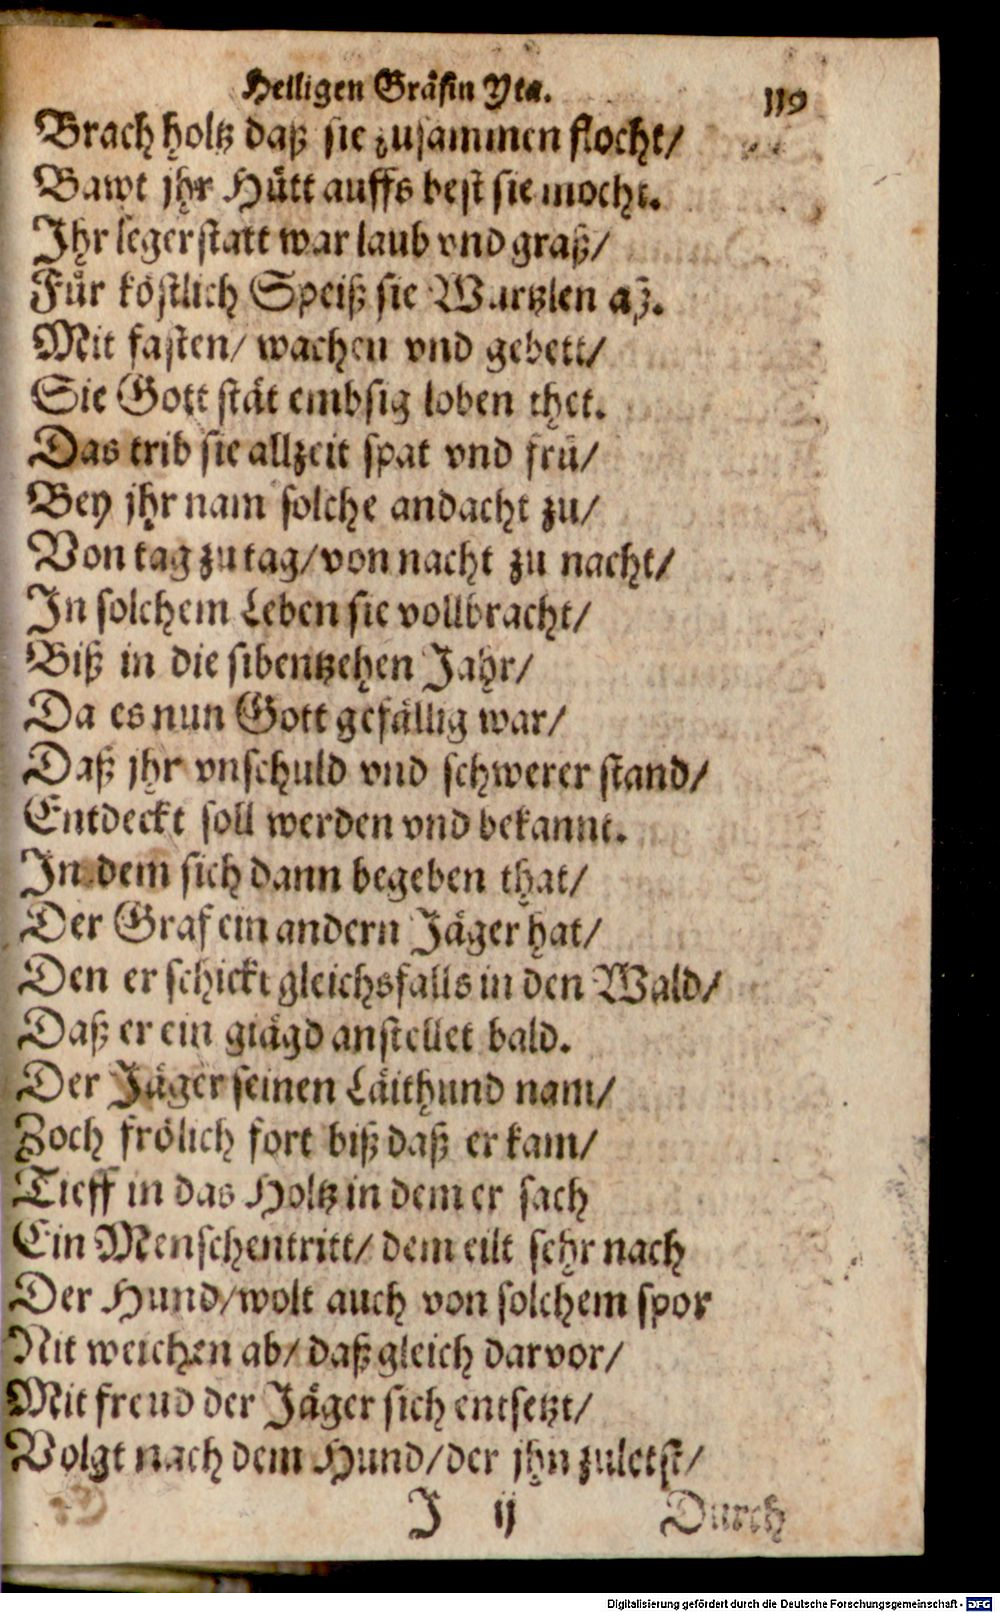 Heiligen Gräfin Yta. 119
Brach holtz daß sie zusammen flocht/
Bawt jhr Hütt auffs best sie mocht.
Ihr legerstatt war laub vnd graß/
Für köstlich Speiß sie Wurtzlen aß.
Mit fasten/ wachen vnd gebett/
Sie Gott stät embsig loben thet.
Das trib sie allzeit spat vnd frü/
Bey jhr nam solche andacht zu/
Von tag zu tag/ von nacht zu nacht/
In solchem Leben sie vollbracht/
Biß in die sibentzehen Jahr/
Da es nun Gott gefällig war/
Daß jhr vnschuld vnd schwerer stand/
Entdeckt soll werden vnd bekannt.
In dem sich dann begeben that/
Der Graf ein andern Jäger hat/
Den er schickt gleichsfalls in den Wald/
Daß er ein giägd anstellet bald.
Der Jäger seinen Läithund nam/
Zoch frölich fort biß daß er kam/
Tieff in das Holtz in dem er sach
Ein Menschentritt/ dem eilt sehr nach
Der Hund/ wolt auch von solchem spor
Nit weichen ab/ daß gleich darvor/
Mit freud der Jäger sich entsetzt/
Volgt nach dem Hund/ der jhn zuletst/
J ij Durch
Digitalisierung gefördert durch die Deutsche Forschungsgemeinschaft - DFG